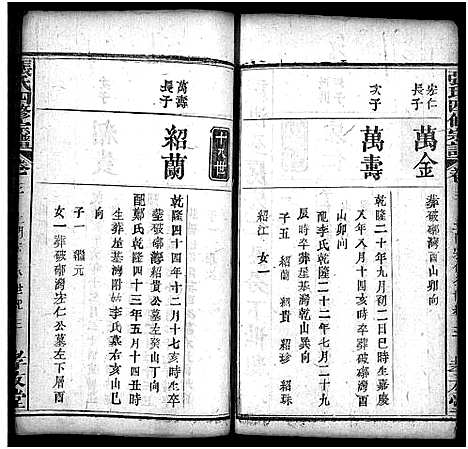 宏仁
長子
萬金
葬破墈灣酉山卯向
次子
萬壽
乾隆二十年九月初二日巳時生嘉慶
八月十四亥時卒葬破墈灣酉
山卯向
配李氏乾隆二十二年七月二十九
辰時卒葬星基灣乾山巽向
子五 紹蘭 紹貴 紹珍 紹珠
紹江 女一
十八世
萬壽
長子
紹蘭
乾隆四十四年十二月十七亥時生卒
葬破墈灣紹貴公墓左癸山丁向
配鄭氏乾隆四十三年五月十四丑時
生葬星基灣附李氏墓右亥山巳
子一 繼元
女一葬破墈灣宏仁公墓左下層酉
張氏四修宗譜
卷三
孝友堂